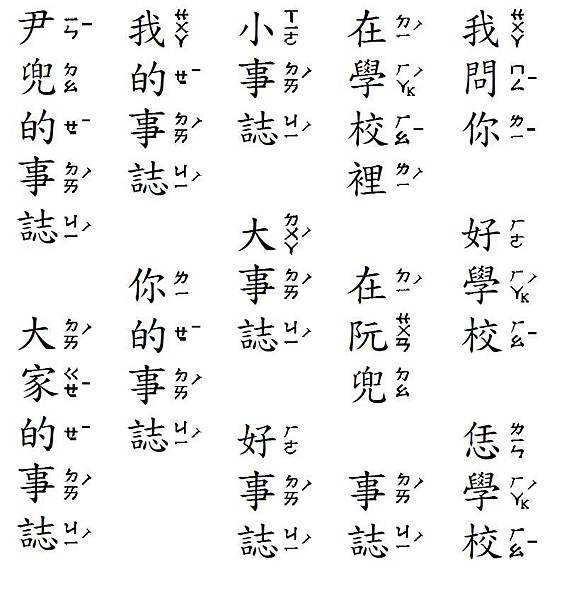 我問你 好學校 恁學校
在學校裡 在阮兜 事誌
小事誌 大事誌 好事誌
我的事誌 你的事誌
尹兜的事誌 大家的事誌